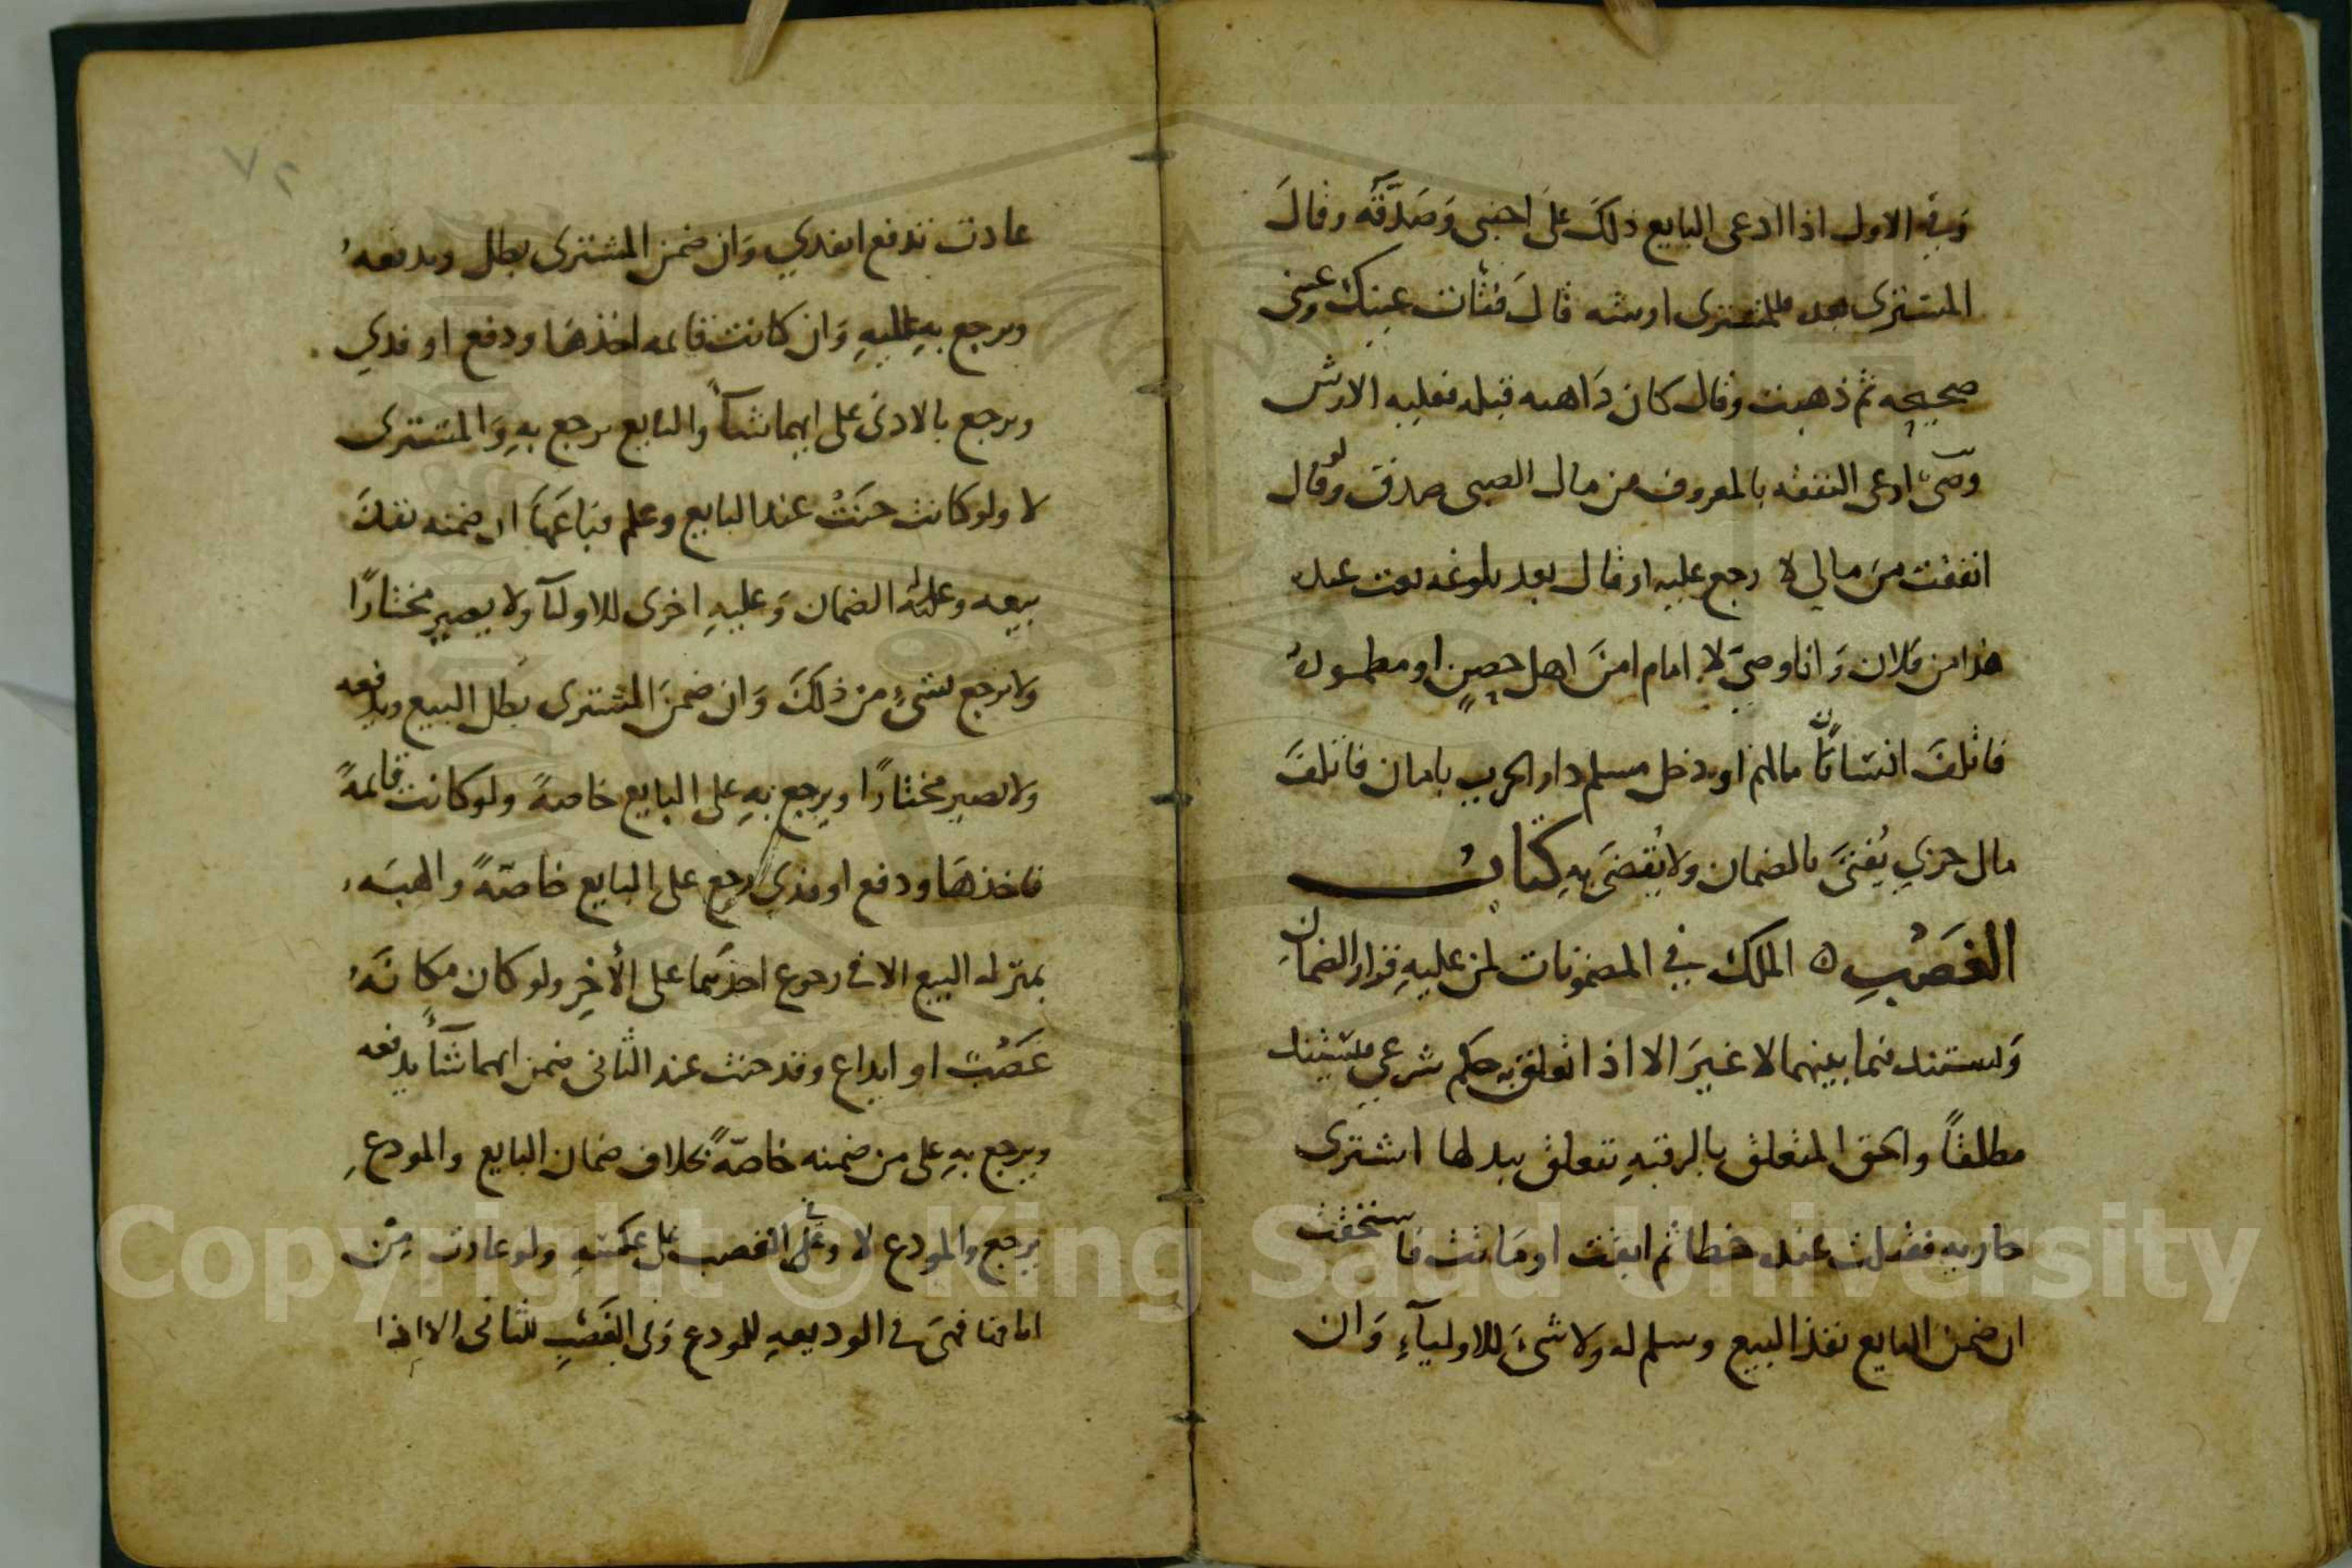 وفي الاول اذا ادعى البايع ذلك على اجنبي وصدقه وقال
المشترى بعد للمشترى ارشه قال فقأت عينك وعينى
صحيحه ثم ذهبت وقال كان ذاهبه قبله فعليه الارش
وصى ادعى النفقه بالمعروف من مال الصبى صدق ولو قال
انفقت من مالي لا رجع عليه او قال بعد بلوغه بعت عبدك
هذا من فلان وانا وصي لا امام امن اهل حصن او مطموره
فاتلف انسانا مالهم او دخل مسلم دار الحرب بامان فاتلف
مال حربي يفتى بالضمان ولا يقضى به كتاب
الغصب ه الملك في المضمونات لمن عليه قرار الضمان
ويستند فيما بينهما لا غير الا اذا تعلق به حكم شرعي فيستند
مطلقا والحق المتعلق بالرقبه يتعلق ببدلها اشترى
جاريه فقتلت عنده خطا ثم ابقت او ماتت فاستحقت
ان ضمن البايع نفذ البيع وسلم له ولا شئ للاولياء وان
٧٢
عادت تدفع او يفدي وان ضمن المشترى بطل ويدفعه
ويرجع به عليه وان كانت قائمه اخذها ودفع او فدي
ويرجع بالادنى على ايهما شاء والبايع يرجع به والمشترى
لا ولو كانت جنت عند البايع وعلم فباعها ان ضمنه نفذ
بيعه وعليه الضمان وعليه اخرى للاوليا ولا يصير مختارا
ولا يرجع بشئ من ذلك وان ضمن المشترى بطل البيع ويدفعه
ولا يصير مختارا ويرجع به على البايع خاصة ولو كانت قائمة
فاخذها ودفع او فدي رجع على البايع خاصة والهبه
بمنزله البيع الا في رجوع احدهما على الأخر ولو كان مكانه
غصب او ايداع وقد جنت عند الثانى ضمن ايهما شاء يدفعه
ويرجع به على من ضمنه خاصة بخلاف ضمان البايع والمودع
يرجع والمودع لا وفي الغصب على عكسه ولو عادت من
اباقها فهى فى الوديعه للمودع وفى الغصب للثانى الا اذا
Copyright © King Saud University
195